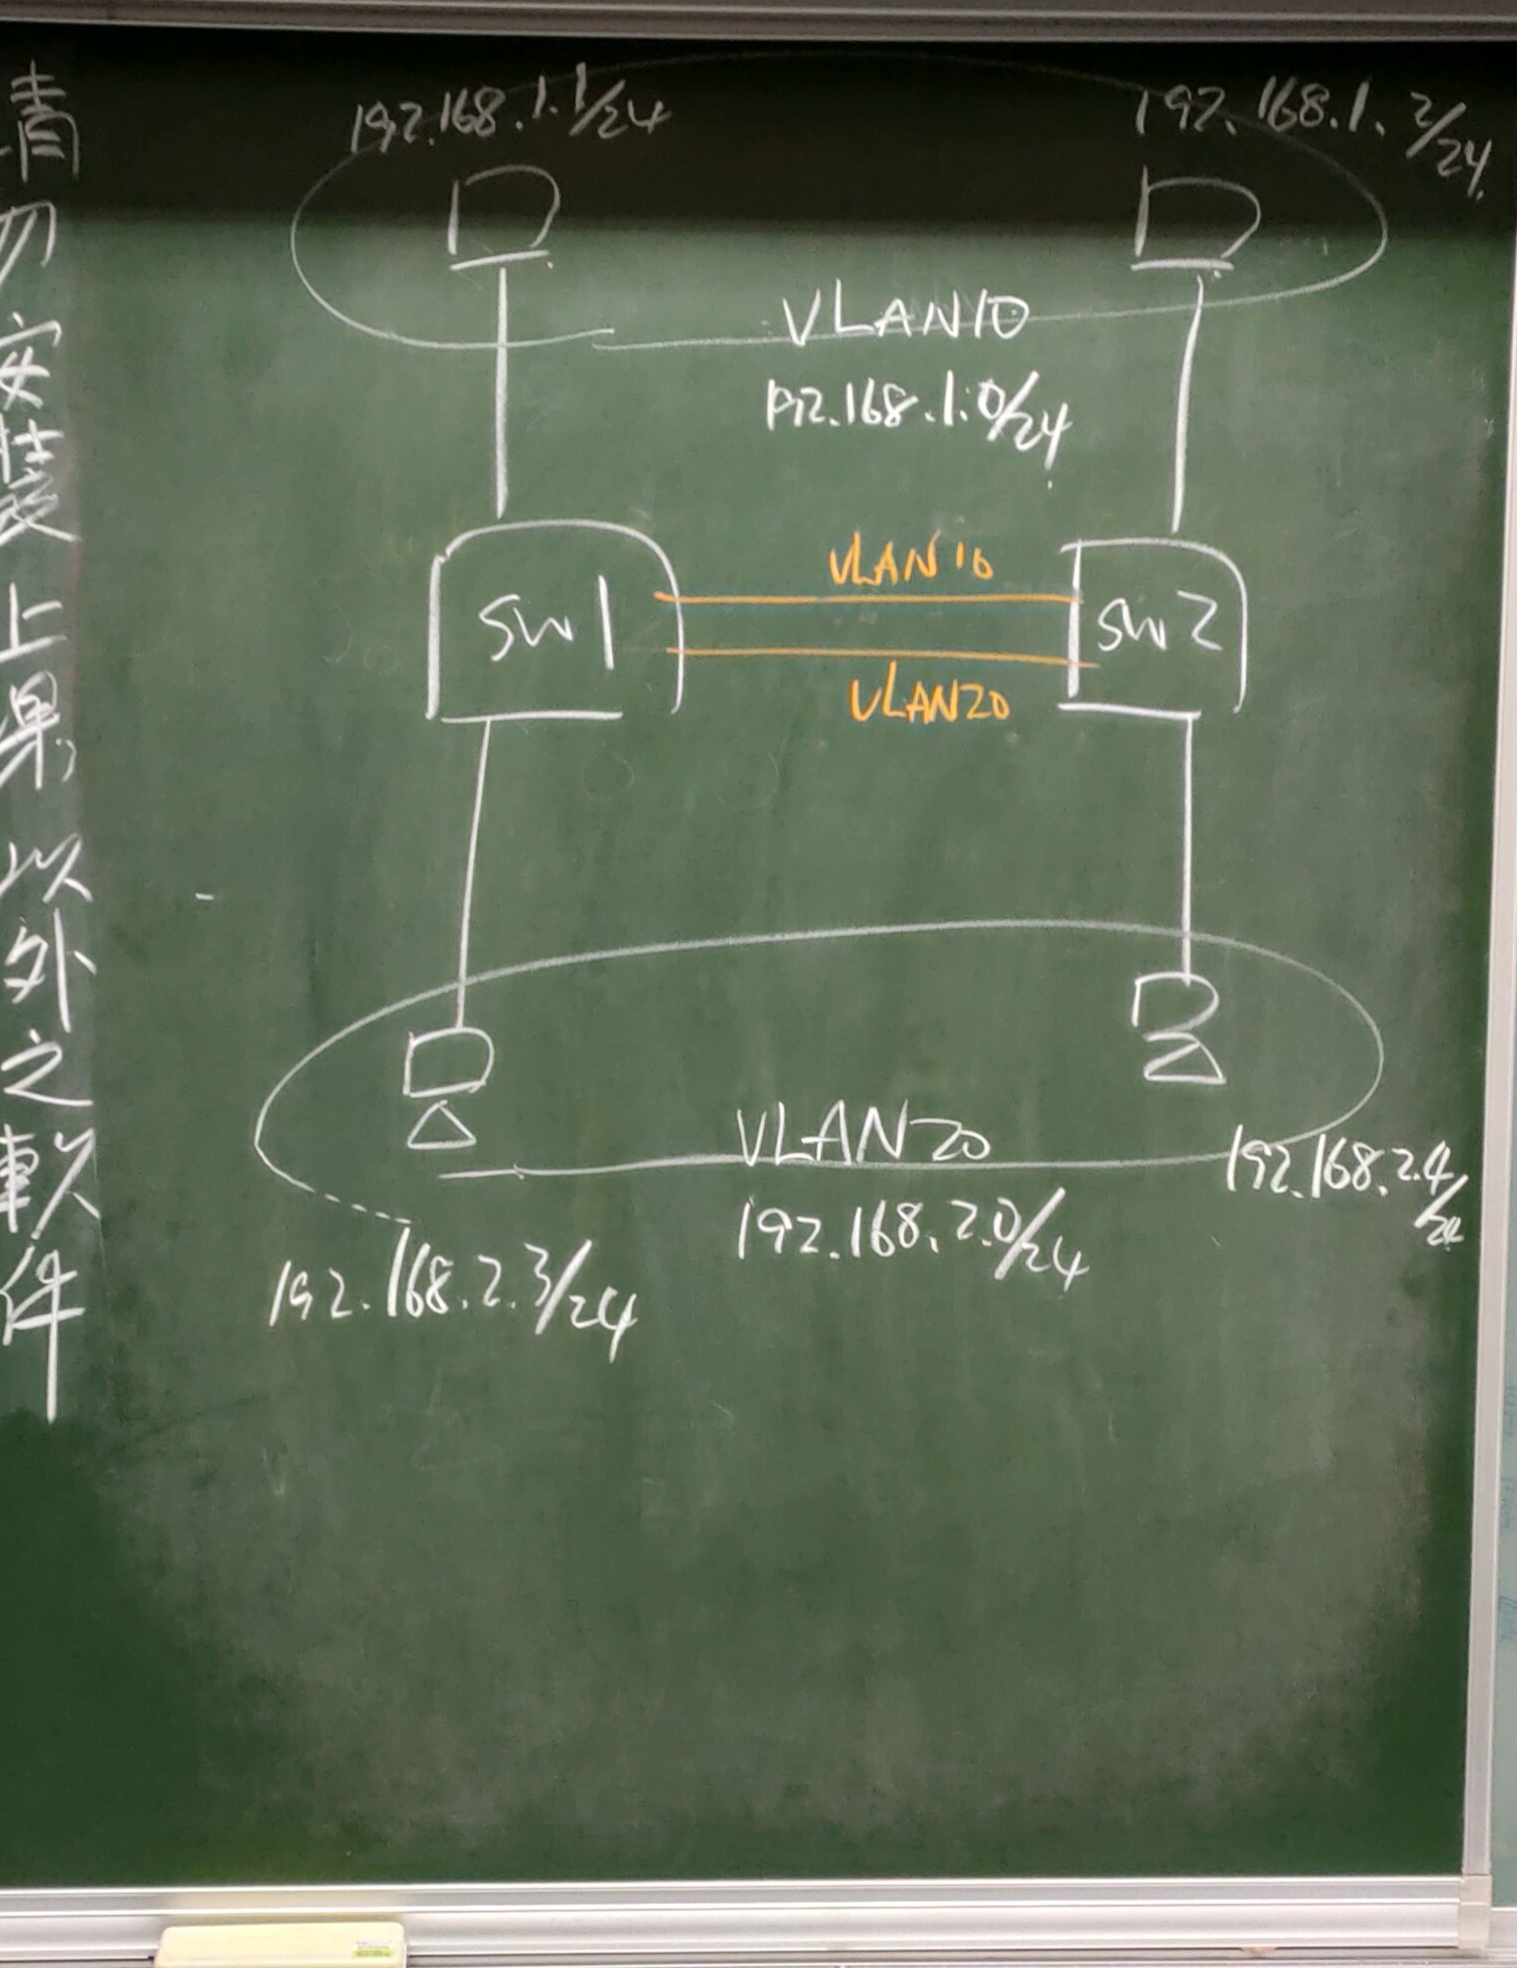 請勿安裝上課以外之軟件
192.168.1.1/24
192.168.1.2/24
VLAN10
192.168.1.0/24
VLAN10
SW1
SW2
VLAN20
VLAN20
192.168.2.0/24
192.168.2.4/24
192.168.2.3/24